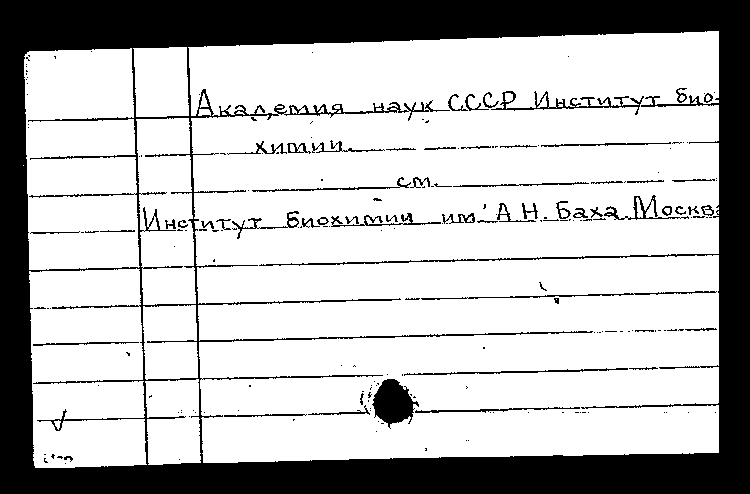 Академия наук СССР Институт био-
химии.
см.
Институт биохимии им. А.Н. Баха. Москва